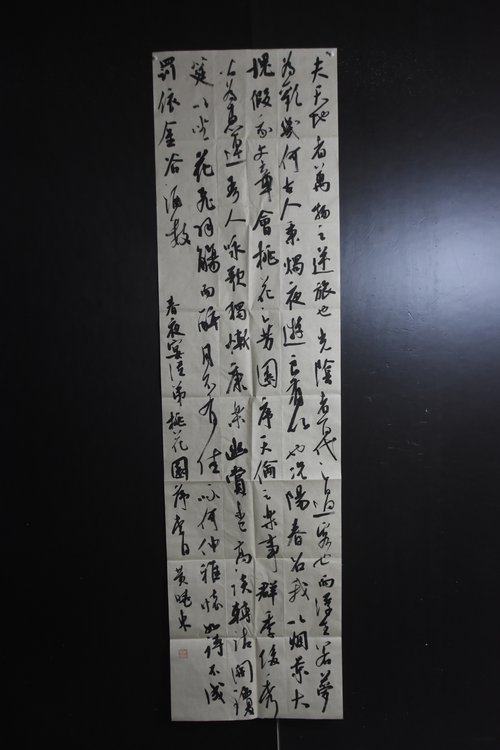 夫天地者萬物之逆旅也光陰者百代之過客也而浮生若夢
為歡幾何古人秉燭夜遊良有以也况陽春召我以烟景大
塊假我文章會桃花之芳園序天倫之樂事群季俊秀
皆為惠連吾人咏歌獨慚康樂幽賞未已高談轉清開瓊
筵以坐花飛羽觴而醉月不有佳咏何伸雅懷如詩不成
罰依金谷酒數
春夜宴從弟桃花園序李白 黄曉東